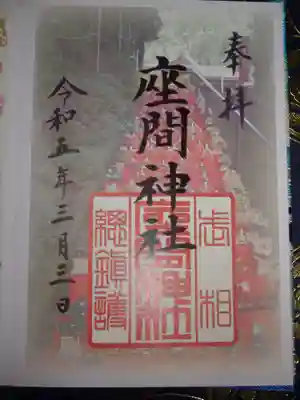 奉拝
座間神社
武相
座間神社
總鎮護
令和五年三月三日